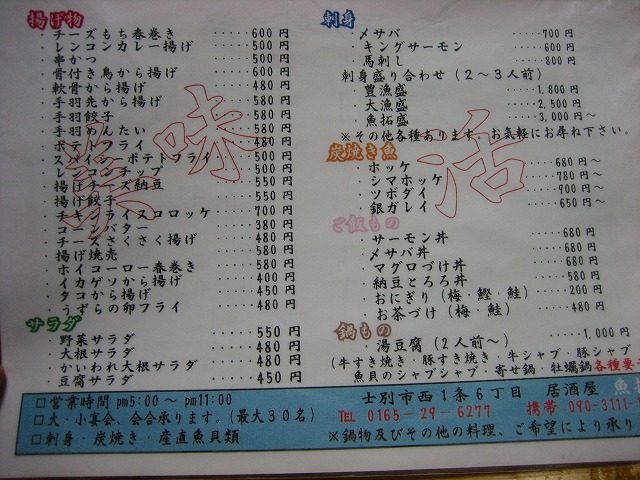 揚げ物
・チーズもち春巻き ・・・・・600円
・レンコンカレー揚げ ・・・・・500円
・串かつ ・・・・・500円
・骨付き鳥から揚げ ・・・・・600円
・軟骨から揚げ ・・・・・480円
・手羽先から揚げ ・・・・・580円
・手羽餃子 ・・・・・580円
・手羽めんたい ・・・・・580円
・ポテトフライ ・・・・・480円
・スパイシーポテトフライ ・・・・・500円
・レンコンチップ ・・・・・550円
・揚げチーズ納豆 ・・・・・550円
・揚げ餃子 ・・・・・550円
・チキンライスコロッケ ・・・・・700円
・コーンバター ・・・・・380円
・チーズさくさく揚げ ・・・・・480円
・揚げ焼売 ・・・・・580円
・ホイコーロー春巻き ・・・・・580円
・イカゲソから揚げ ・・・・・400円
・タコから揚げ ・・・・・450円
・うずらの卵フライ ・・・・・480円
サラダ
・野菜サラダ ・・・・・550円
・大根サラダ ・・・・・480円
・かいわれ大根サラダ ・・・・・480円
・豆腐サラダ ・・・・・450円
刺身
・メサバ ・・・・・700円
・キングサーモン ・・・・・600円
・馬刺し ・・・・・800円
刺身盛り合わせ（2～3人前）
・豊漁盛 ・・・・・1,800円
・大漁盛 ・・・・・2,500円
・魚拓盛 ・・・・・3,000円～
※その他各種あります、お気軽にお尋ね下さい。
炭焼き魚
・ホッケ ・・・・・680円～
・シマホッケ ・・・・・780円～
・ツボダイ ・・・・・900円～
・銀ガレイ ・・・・・650円～
ご飯もの
・サーモン丼 ・・・・・680円
・メサバ丼 ・・・・・680円
・マグロづけ丼 ・・・・・680円
・納豆とろろ丼 ・・・・・580円
・おにぎり（梅・鰹・鮭） ・・・・・200円
・お茶づけ（梅・鮭） ・・・・・480円
鍋もの
・湯豆腐（2人前～） ・・・・・1,000円
(牛すき焼き・豚すき焼き・牛シャブ・豚シャブ
魚貝のシャブシャブ・寄せ鍋・牡蠣鍋各種要
味
活
□営業時間 pm5:00～pm11:00
□大・小宴会、会合承ります。(最大30名)
□刺身・炭焼き・産直魚貝類
士別市西1条6丁目 居酒屋 魚
TEL 0165-29-6277 携帯 090-3111-
※鍋物及びその他の料理、ご希望により承り